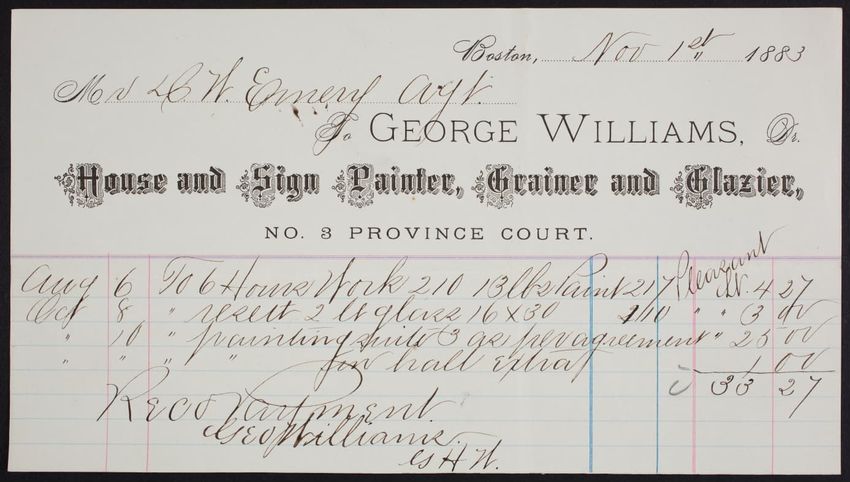 Boston, Nov 1st 1883
Mrs D. W. Emery Agt.
To GEORGE WILLIAMS, Dr.
House and Sign Painter, Grainer and Glazier,
NO. 3 PROVINCE COURT.
Pleasant St.
Aug 6 To 6 Hours Work 210 13 lbs Paint 217 4 27
Oct 8 " resett 2 lt glass 16 x 30 " " 3 00
" 10 " painting suite 3 as per agreement " 25 00
" " " " for hall extra 1 00
33 27
Recd Payment
Geo Williams.
G H W.